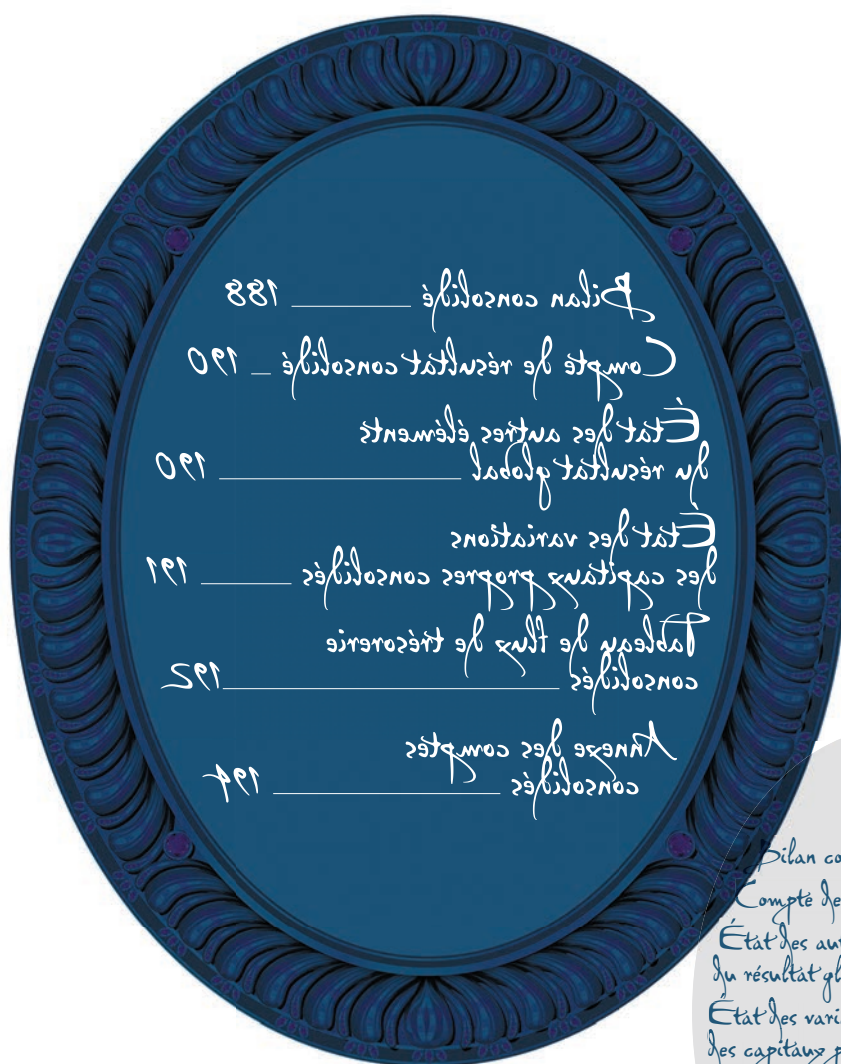 Bilan consolidé ________ 188
Compte de résultat consolidé _ 190
État des autres éléments
du résultat global ________ 190
État des variations
des capitaux propres consolidés ________ 191
Tableau de flux de trésorerie
consolidés ________ 192
Annexe des comptes
consolidés ________ 194
Bilan co
Compte de
État des au
du résultat gl
État des vari
des capitaux p